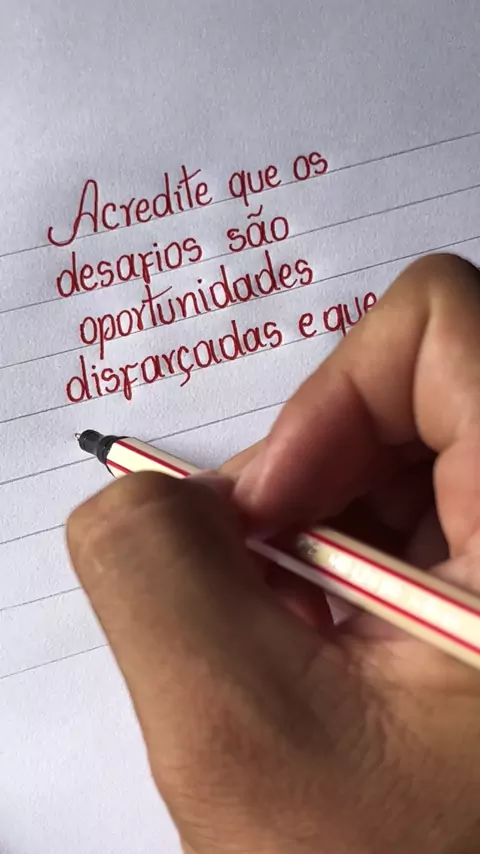 Acredite que os
desafios são
oportunidades
disfarçadas e que